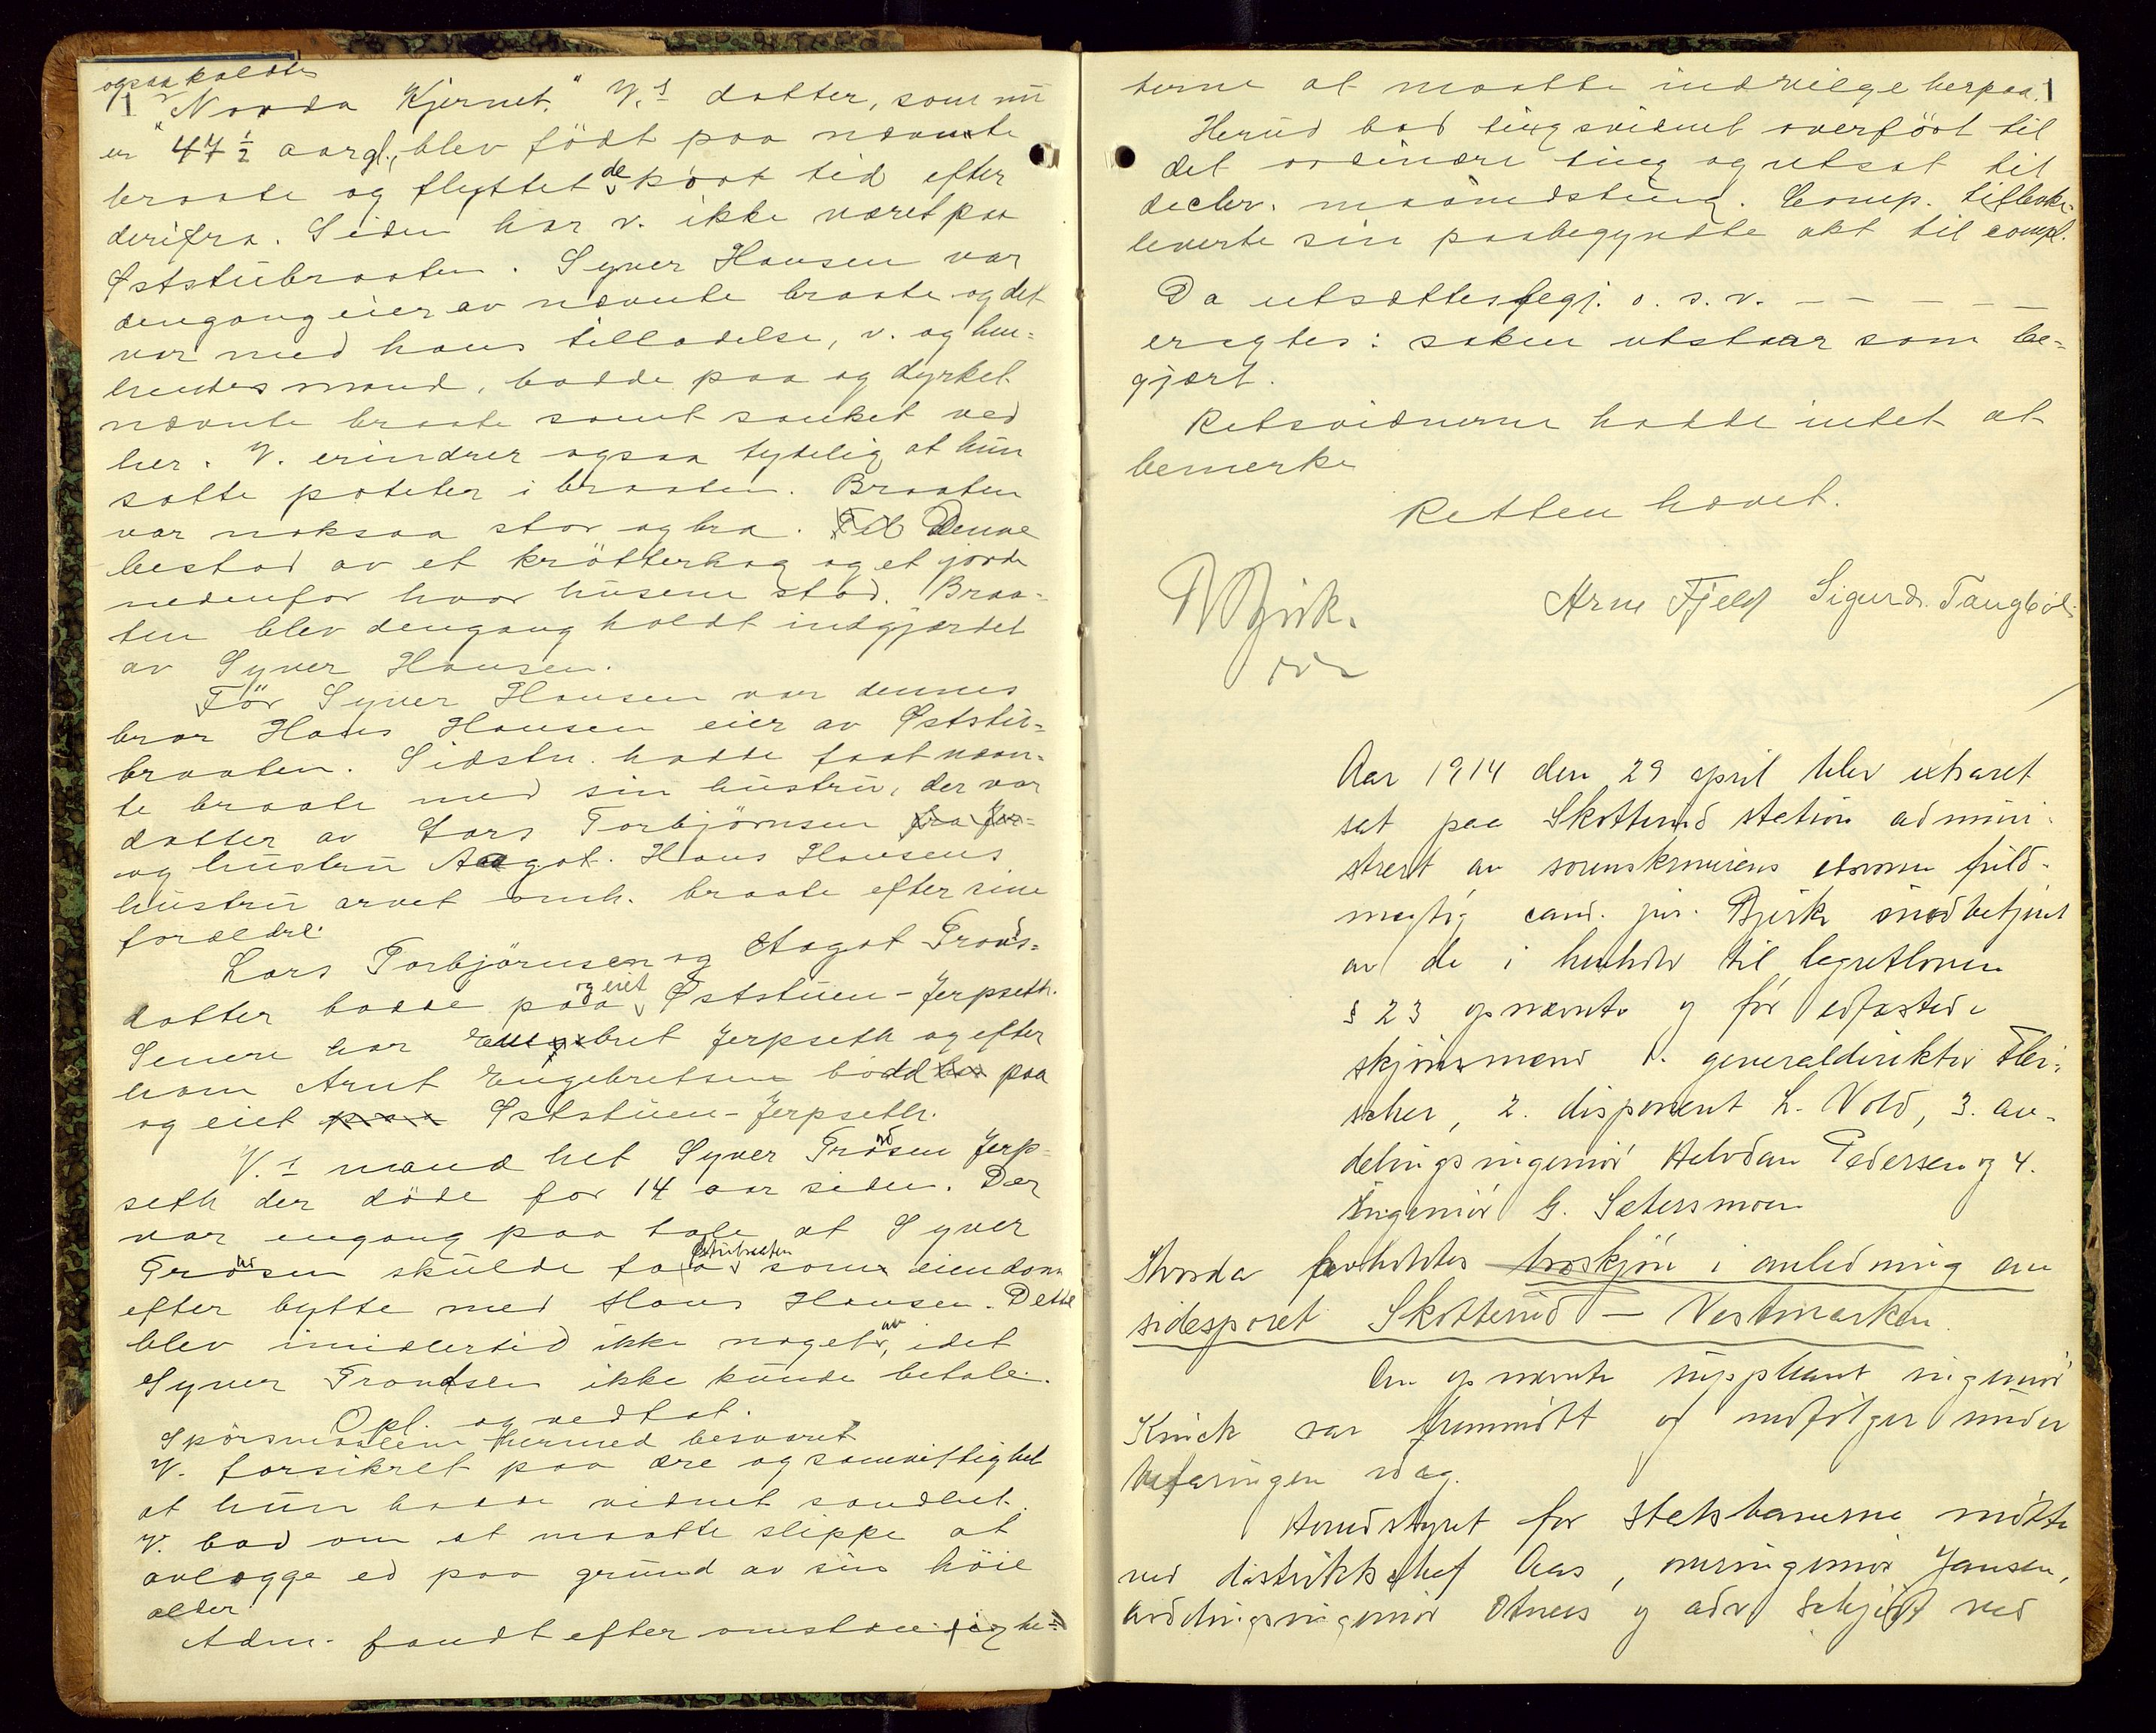 ogsaa kaldes
"Norda Kjernet." V.s datter, som nu
er 47 1/2 aar gl., blev født paa nævnte
braate og flyttet de kort tid efter
derifra. Siden har v. ikke været paa
Øststubraaten. Syver Hansen var
dengang eier av nævnte braate og det
var med hans tilladelse, v. og hen-
hendes mand, bodde paa og dyrket
nævnte braate samt sanket ved
her. V. erindrer ogsaa tydelig at hun
satte poteter i braaten. Braaten
var noksaa stor og bra. Denne
bestod av et krøtterhag og et jorde
nedenfor hvor husene stod. Braa-
ten blev dengang holdt indgjærdet
av Syver Hansen.
Før Syver Hansen var dennes
bror Hans Hansen eier av Øststu-
braaten. Sidstn. hadde faat nævn-
te braate med sin hustru, der var
datter av Lars Torbjørnsen
og hustru Aagot. Hans Hansens
hustru arvet omh. braate efter sine
forældre.
Lars Torbjørnsen og Aagot Tronds-
datter bodde paa og eiet Øststuen-Jerpseth.
Senere har Engebret Jerpseth og efter
ham Arnt Engebretsen bodd paa
og eiet Øststuen-Jerpseth.
V.s mand het Syver Trondsen Jerp-
seth der døde for 14 aar siden. Der
var engang paa tale at Syver
Trondsen skulde faa Øststubraaten som eiendom
efter bytte med Hans Hansen. Dette
blev imidlertid ikke noget av, idet
Syver Trondsen ikke kunde betale.
Opl. og vedtat.
Spørsmaalene hermed besvaret
V. forsikret paa ære og samvittighet
at hun hadde vidnet sandhet.
V. bad om at maatte slippe at
avlægge ed paa grund av sin høie
alder
Adm. fandt efter omstændighe-
terne at maatte indvilge herpaa.
Herud bad tingsvidnet overført til
det ordinære ting og utsat til
decbr. maanedsting. Comp. tilbake-
leverte sin paabegyndte akt til compl.
Da utsættes begj. o. s. v. - - - - -
eragtes: saken utstaar som be-
gjært.
Retsvidnerne hadde intet at
bemerke
Retten hævet.
Bjirk. Arne Fjeld Sigurd Tangbøl
Aar 1914 den 29 april blev extraret
sat paa Skotterud station admini-
strert av sorenskriverens edsvorne fuld-
mægtig cand. jur. Bjirk medbetjent
av de i henhold til lagretloven
§ 23 opnævnte og før edfæstede
skjønsmænd 1. generaldirektør Flei-
scher, 2. disponent L. Vold, 3. av-
delingsingeniør Halvdan Pedersen og 4.
Ingeniør G. Sætersmoen
Hvorda forholdtes i anledning av
sidesporet Skotterud - Vestmarken.
Den opnævnte suppleant ingeniør
Kinck var fremmøtt og medfølger under
befaringen idag.
Hovedstyret for Statsbanerne møtte
ved distriktschef Aas, overingeniør Jansen,
avdelingsingeniør Otnes og adv. Schjødt ved